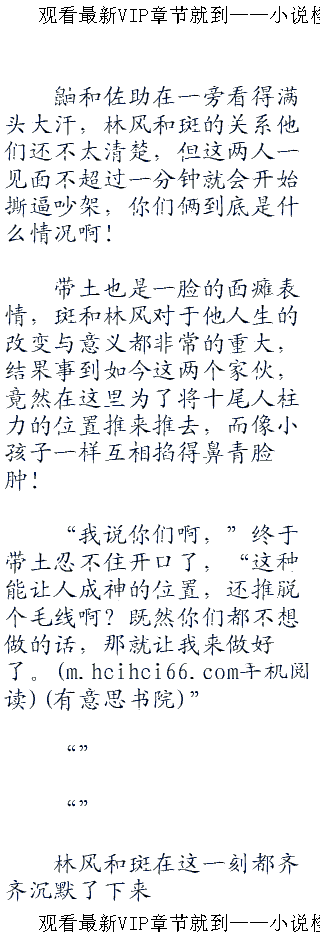 观看最新VIP章节就到——小说
鼬和佐助在一旁看得满
头大汗，林风和斑的关系他
们还不太清楚，但这两人一
见面不超过一分钟就会开始
撕逼吵架，你们俩到底是什
么情况啊！
带土也是一脸的面瘫表
情，斑和林风对于他人生的
改变与意义都非常的重大，
结果事到如今这两个家伙，
竟然在这里为了将十尾人柱
力的位置推来推去，而像小
孩子一样互相掐得鼻青脸
肿！
“我说你们啊，”终于
带土忍不住开口了，“这种
能让人成神的位置，还推脱
个毛线啊？既然你们都不想
做的话，那就让我来做好
了。(m.hcihci66.com手机阅
读)(有意思书院)”
“”
“”
林风和斑在这一刻都齐
齐沉默了下来
观看最新VIP章节就到——小说